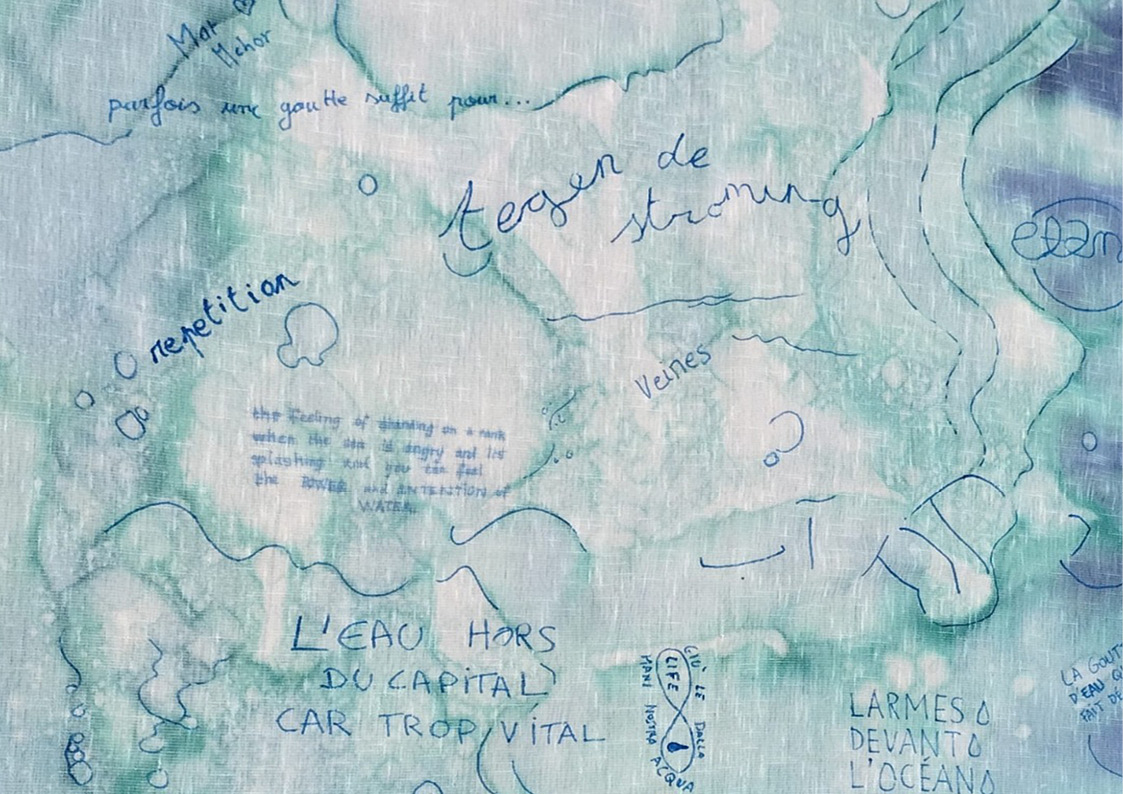 Mar
Mchor
parfois une goutte suffit pour...
tegen de
stroming
elan
repetition
Veines
the feeling of standing on a rock
when the sea is angry and its
splashing and you can feel
the POWER and INTENTION of
WATER
L'EAU HORS
DU CAPITAL
CAR TROP VITAL
GIÙ LE
MANI
DALLA
NOSTRA
ACQUA
LIFE
LARMES
DEVANT
L'OCÉAN
LA GOUT
D'EAU QU
FAIT DÉ